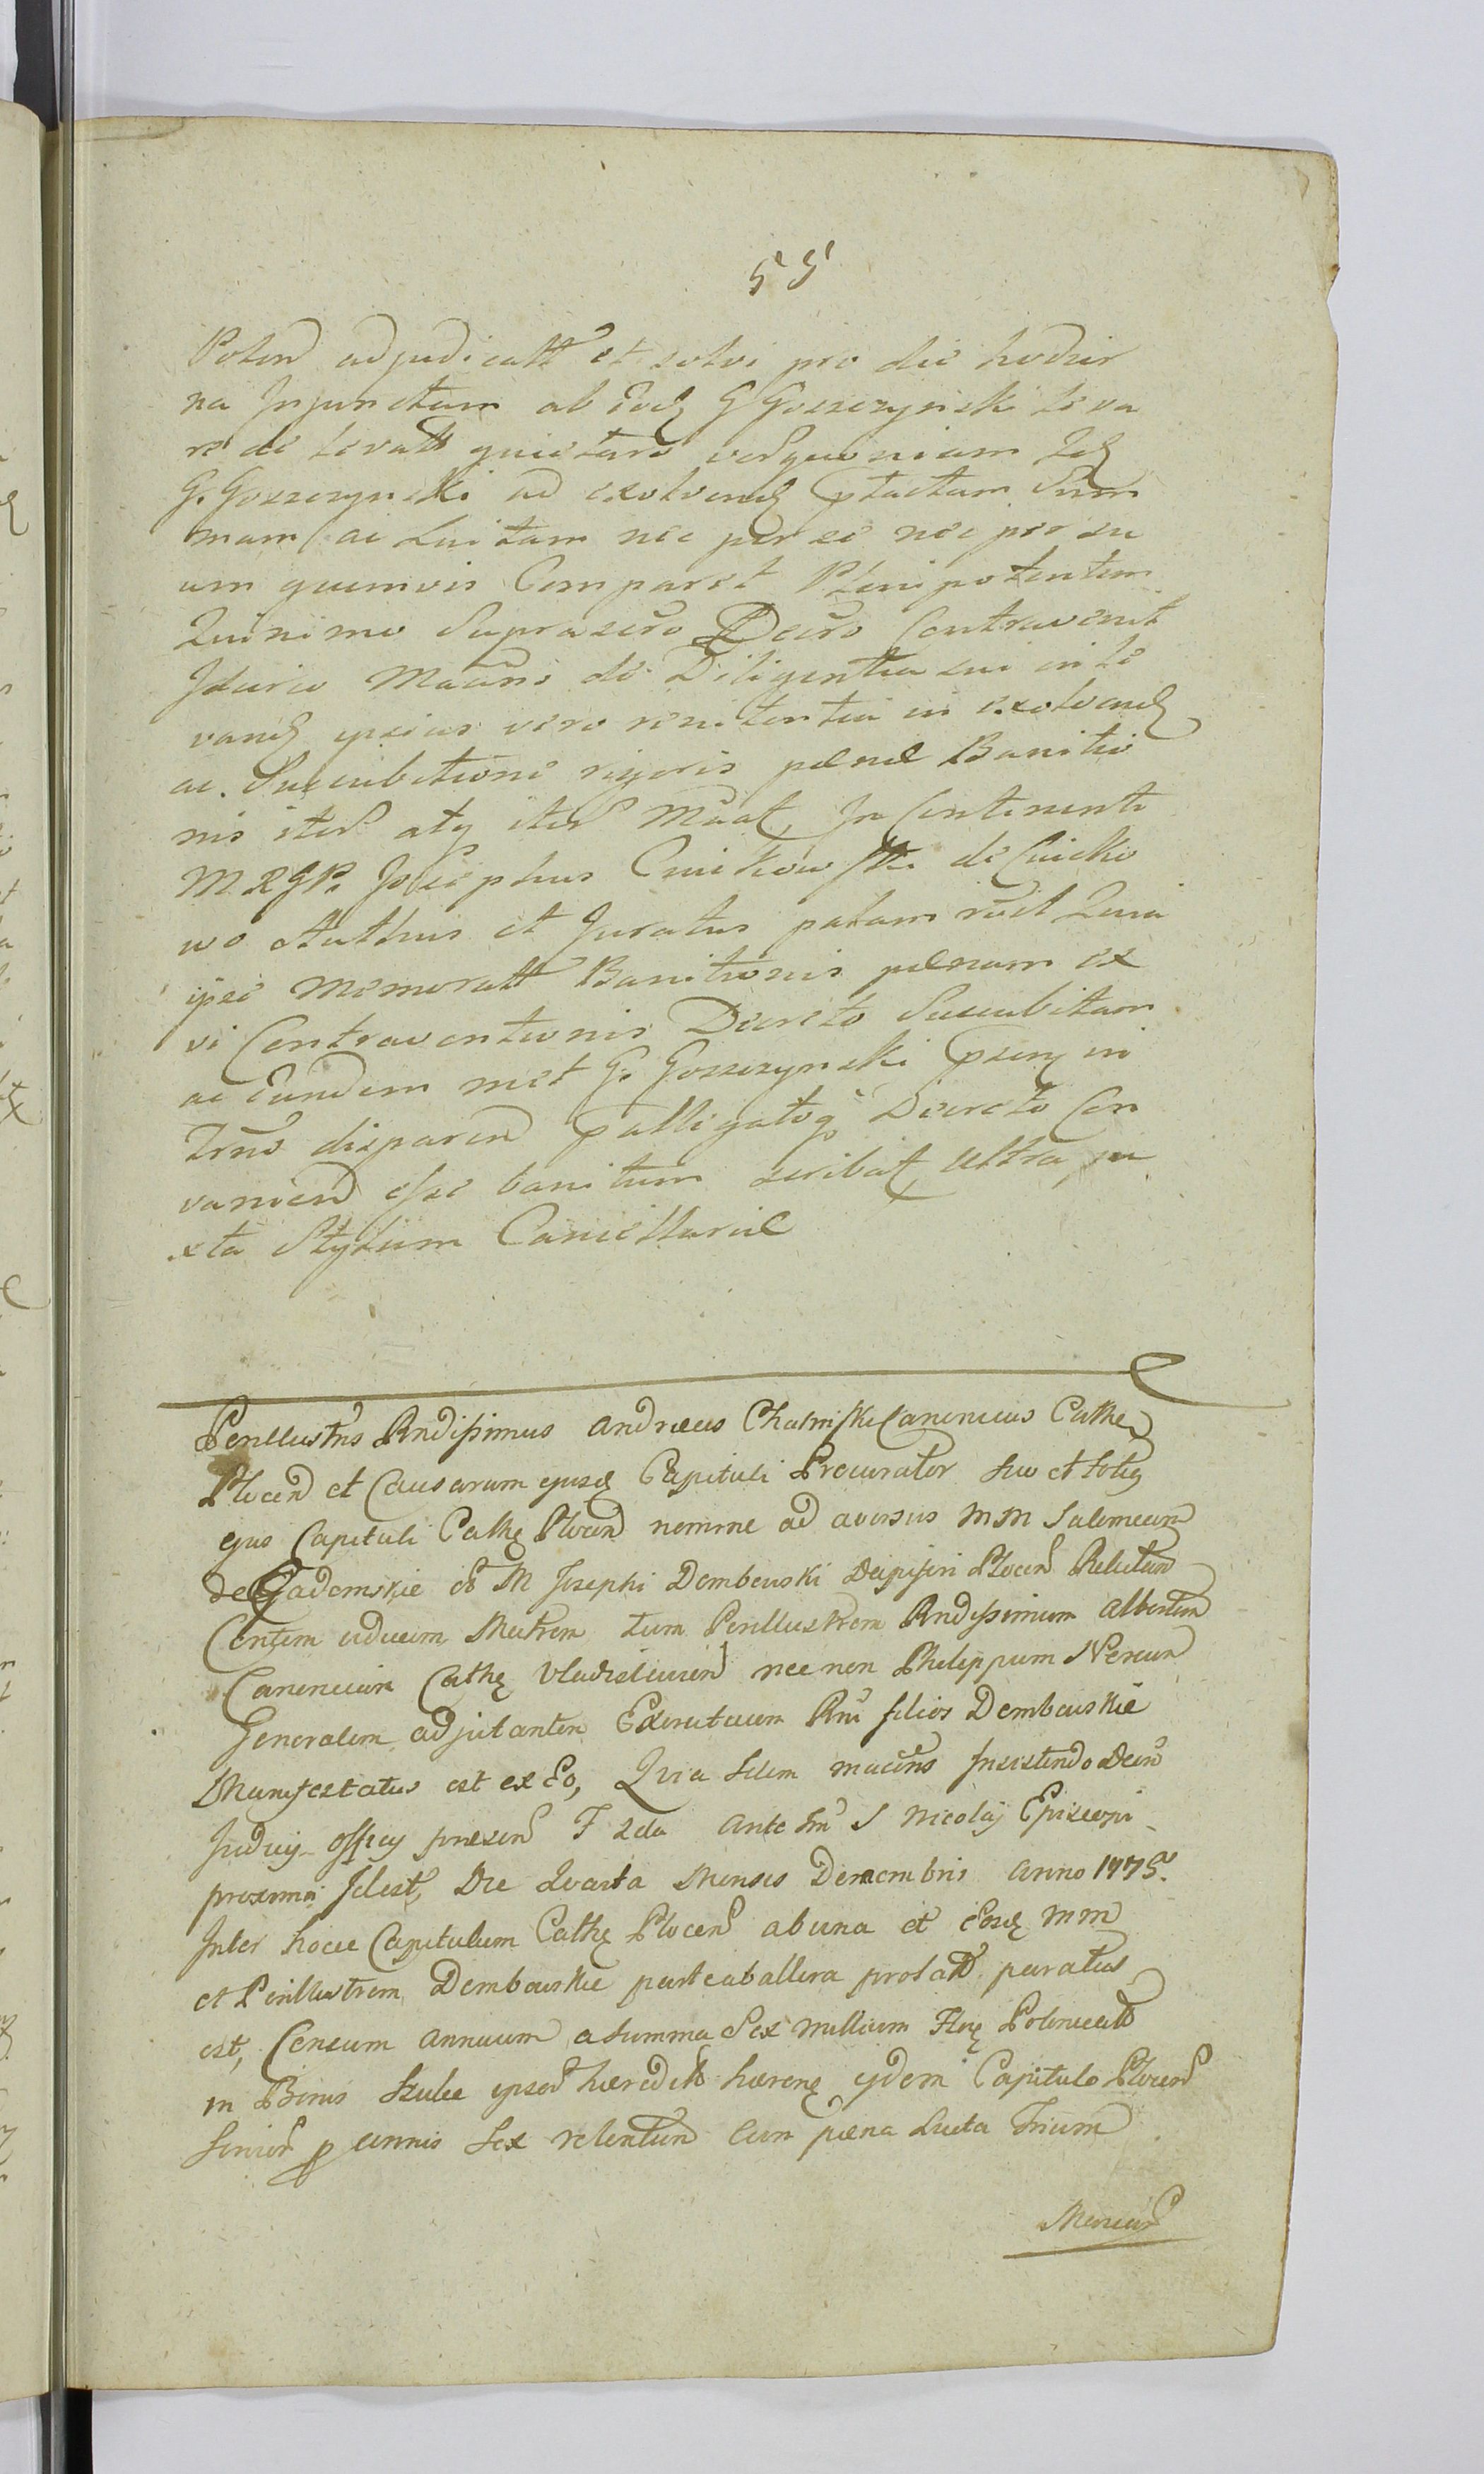 55
Polond adjudicatt et solvi pro die hodier
na Injunctam ab eodę G Goszczynski leva
re de levatt quietare verũ quoniam Idę
G. Goszczynski ad exolvendę ptactam Sum
mam ac Luitam nec per se nec per su
um quemvis Comparet Plenipotentem
Quinimo Suprascro Decro Contravenit
Idcirco Maũns de Diligentia sui in le
vandę ipsius vero renitentia in exolvendę
ac Succubitione rigoris pænæ Banitio
nis iterũ atq iterũ Mãat, In Continenti
M R G P. Josephus Cwiekowski de Cwieko
wo Authus et Juratus palam rũit Quia
ipse memoratt Banitionis pænam ex
vi Contraventionis Decreto Succubitam
ac Eundem met G. Goszczynski pseng in
Trno disparend palligatoq Decreto Con
vaniend esse banitum scribat, Ultra ju
xta Stylum Cancellariæ
Perillustris Rndissimus Andreas Chalmski Canonicus Cathę
Plocen et Causarum ejusdę Capituli Procurator suo et totiq
ejus Capituli Cathę Plocen nomine ad aversus MM Salomeam
de Gadomskie ol M Josephi Dembowski Dapiferi Plocen Relictam
Consem viduam Matrem tum Perillustrem Rndissimum Albertum
Canonicum Cathę Vladislavien nec non Philippum Nereum
Generalem adjutantem Exercituum Rni filios Dembowskie
Manifestatus est ex Eo, Quia Idem macins Insistendo Decro
Judicij Officij præsen F 2da ante fm S Nicolaij Episcopi
proxima Idest, Die Quarta Mensis Decembris Anno 1775.
Inter hocce Capitulum Cathę Plocen ab una et Eosdę MM
et Perillustrem Dembowskie parte ab altera prolatt paratus
est, Censum annuum a summa Sex millium Flrę Polonicalt
in Bonis Szulec ipsor hæreditt hæreng ejdem Capitulo Plocen
servien p annis Sex retentum Cum pæna Lucta Trium
Marcar